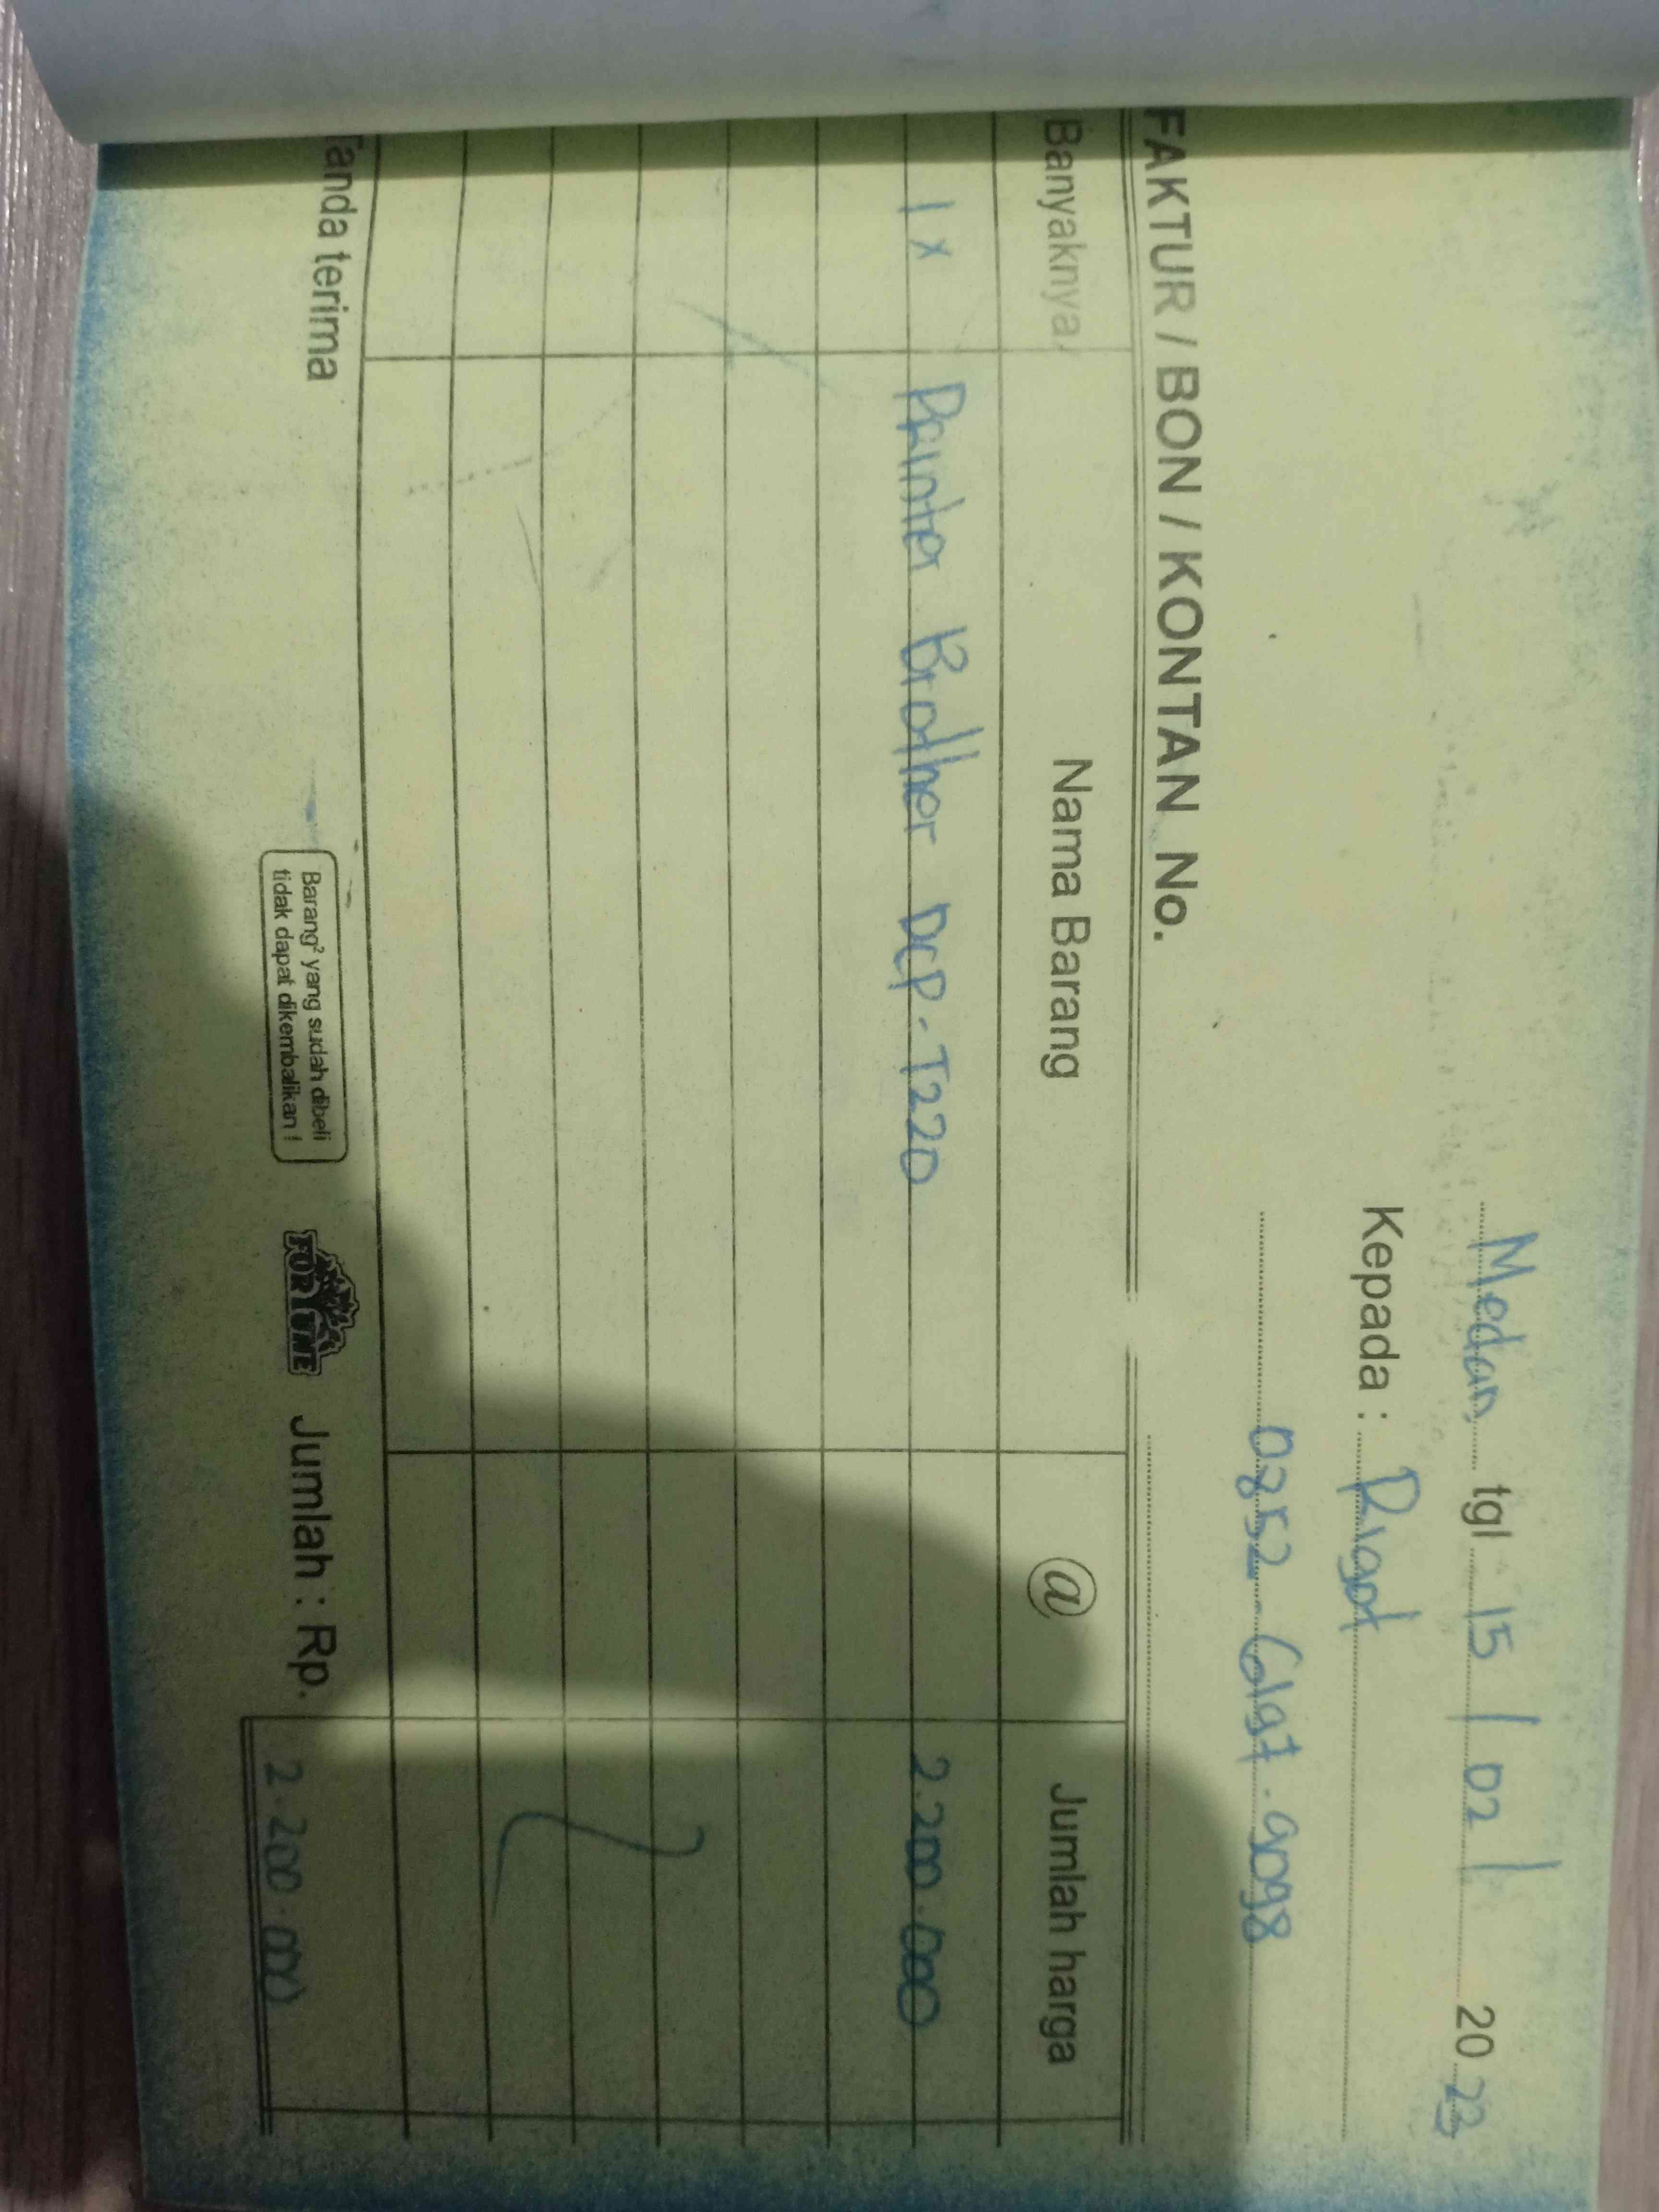 Medan, tgl 15 / 02 / 20 23
Kepada : Rigot
0852-6197-9098
FAKTUR / BON / KONTAN No.
Banyaknya Nama Barang @ Jumlah harga
1 x Printer Brother DCP-T220 2.200.000
anda terima
Barang² yang sudah dibeli
tidak dapat dikembalikan !
FORTUNE
Jumlah : Rp. 2.200.000